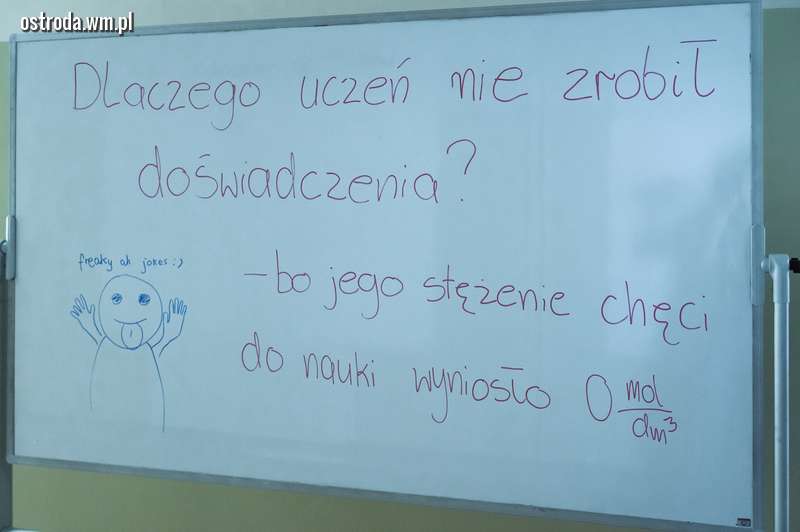 ostroda.wm.pl
Dlaczego uczeń nie zrobił
doświadczenia?
freaky ah jokes :)
– bo jego stężenie chęci
do nauki wyniosło 0 mol/dm³